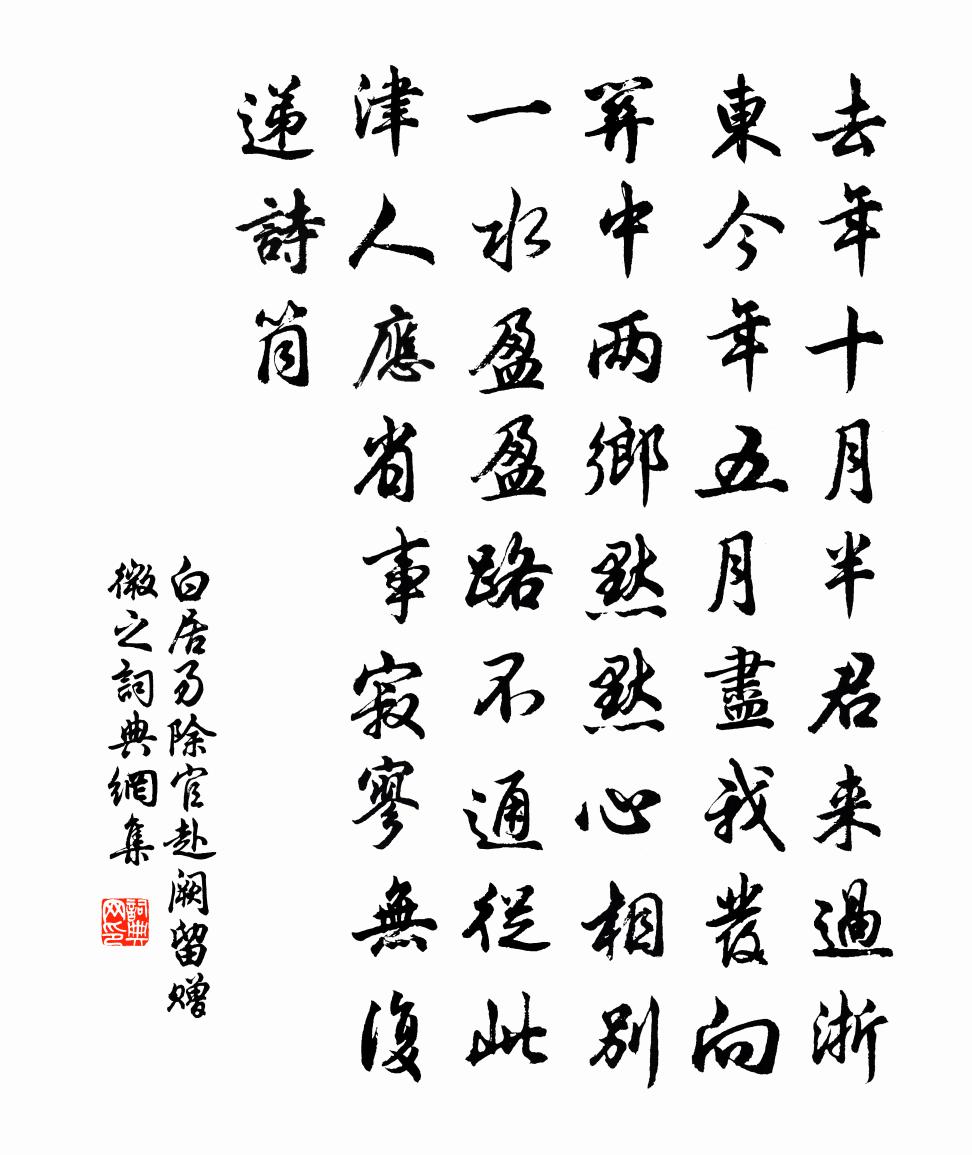 去年十月半君来過浙
東今年五月盡我發向
關中两鄉黙黙心相别
一水盈盈路不通從此
津人應省事寂寥無復
递詩筒
白居易除官赴阙留赠
微之詞典網集
詞典网印